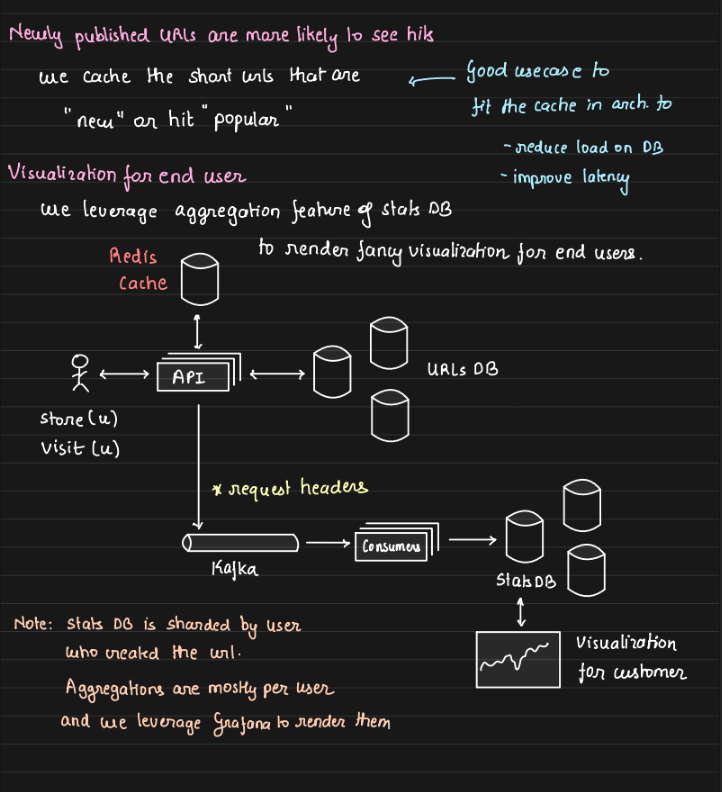 Newly published URLs are more likely to see hits
we cache the short urls that are
"new" or hit "popular"
Good usecase to
fit the cache in arch. to
- reduce load on DB
- improve latency
Visualization for end user
we leverage aggregation feature of stats DB
to render fancy visualization for end users.
Redis
Cache
API
URLs DB
store(u)
visit(u)
* request headers
Kafka
Consumers
Stats DB
Note: Stats DB is sharded by user
who created the url.
Aggregations are mostly per user
and we leverage Grafana to render them
Visualization
for customer